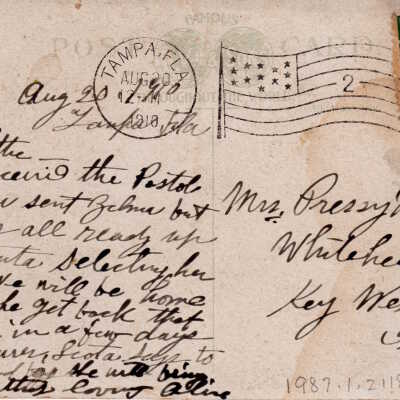 CAMPUS
POST CARD
TAMPA, FLA.
AUG 20
12-M
1910
2
Aug 20 1910
Tampa Fla
the
the Postal
sent Zelma but
all ready up
selecting her
we will be home
he get back that
in a few days
Scota says to
she will bring
this loving Alive
Mrs. Pressy
Whitehe
Key Wes
1987.1.211